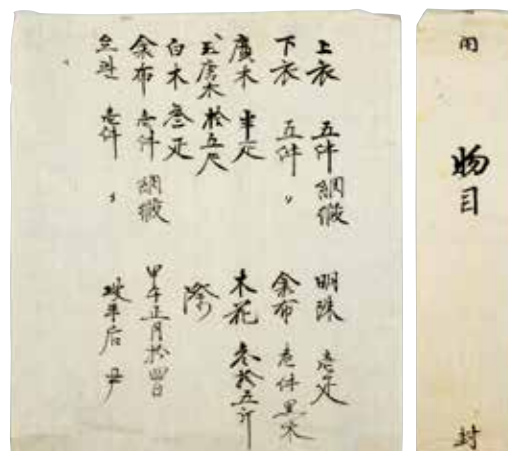 物目
封
上衣 五件 綢緞
下衣 五件 〃
廣木 半疋
玉唐木 拾五尺
白木 叄疋
余布 壱件 綢緞
壱件 〃
明珠 壱疋
余布 壱件
木花 叄拾五斤
際
甲午正月拾四日
坡平后 尹